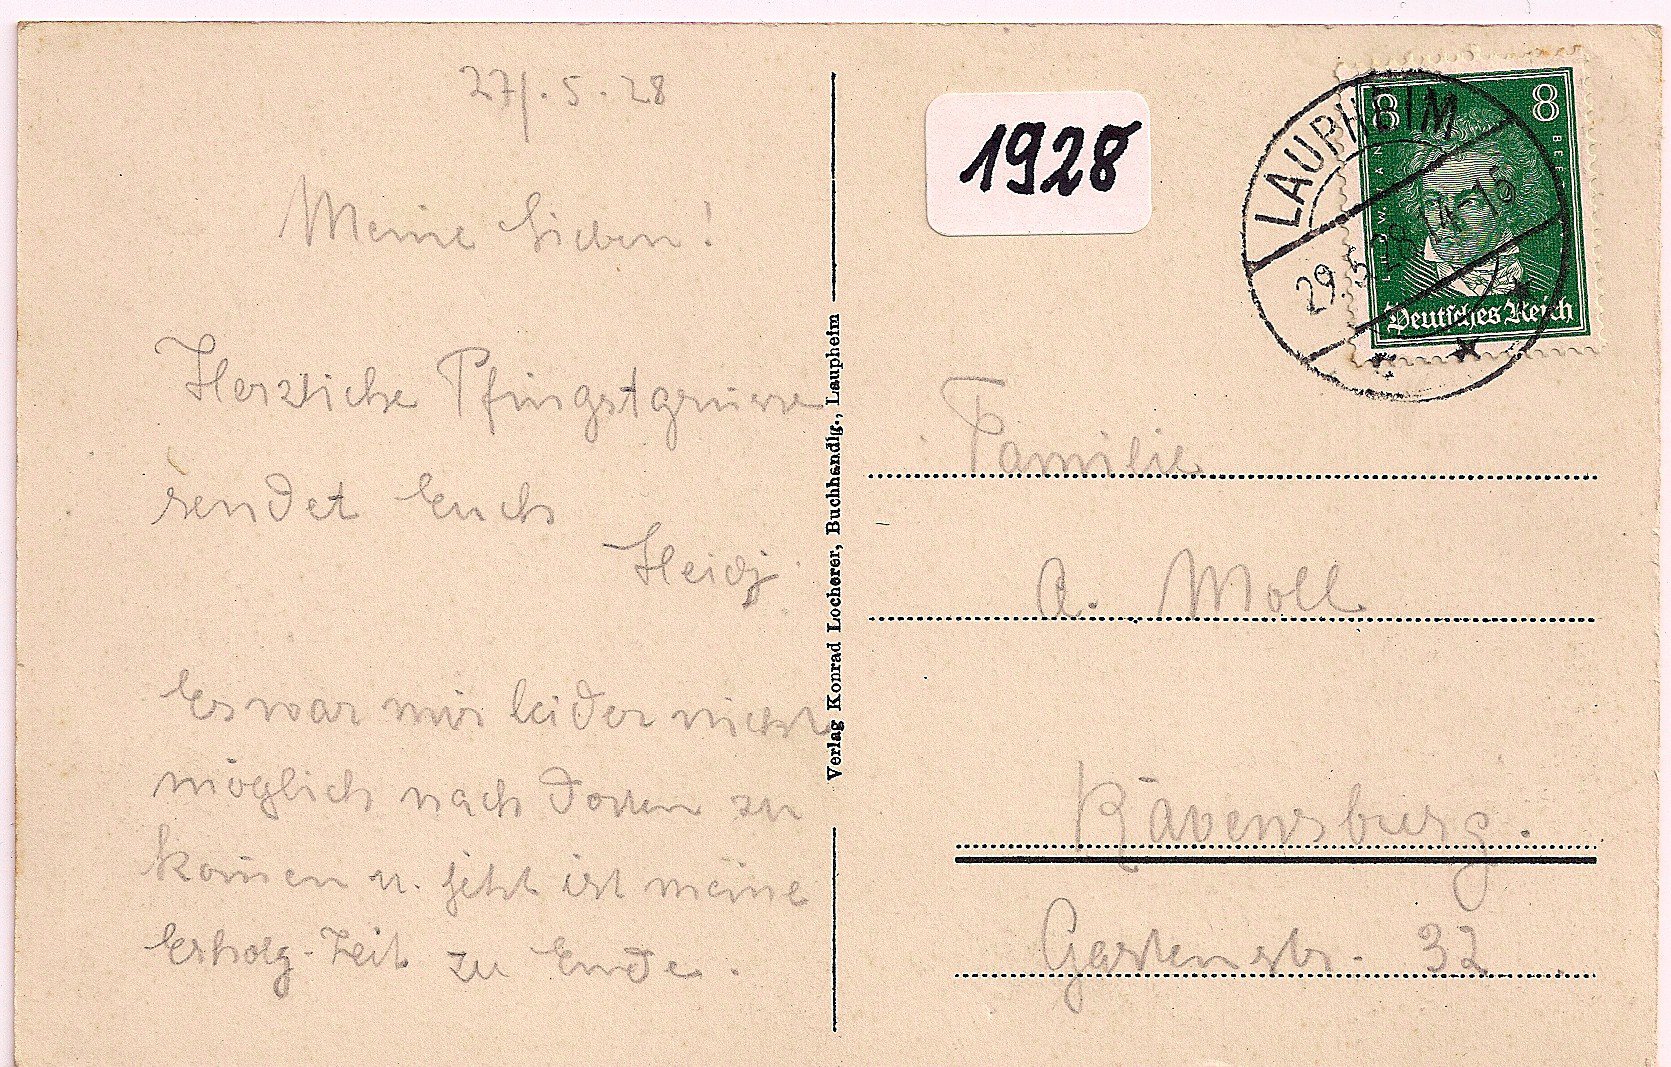 27/.5.28
Meine Lieben!
Herzliche Pfingstgrüsse
sendet Euch
Es war mir leider nicht
möglich nach dorten zu
kom̄en u. jetzt ist meine
Erholg-Zeit zu Ende.
Verlag Konrad Locherer, Buchhandlg., Laupheim
1928
LAUPHEIM
29.5.28 14-15
8 8
Deutsches Reich
Familie
A. Moll
Ravensburg.
Gartenstr. 32